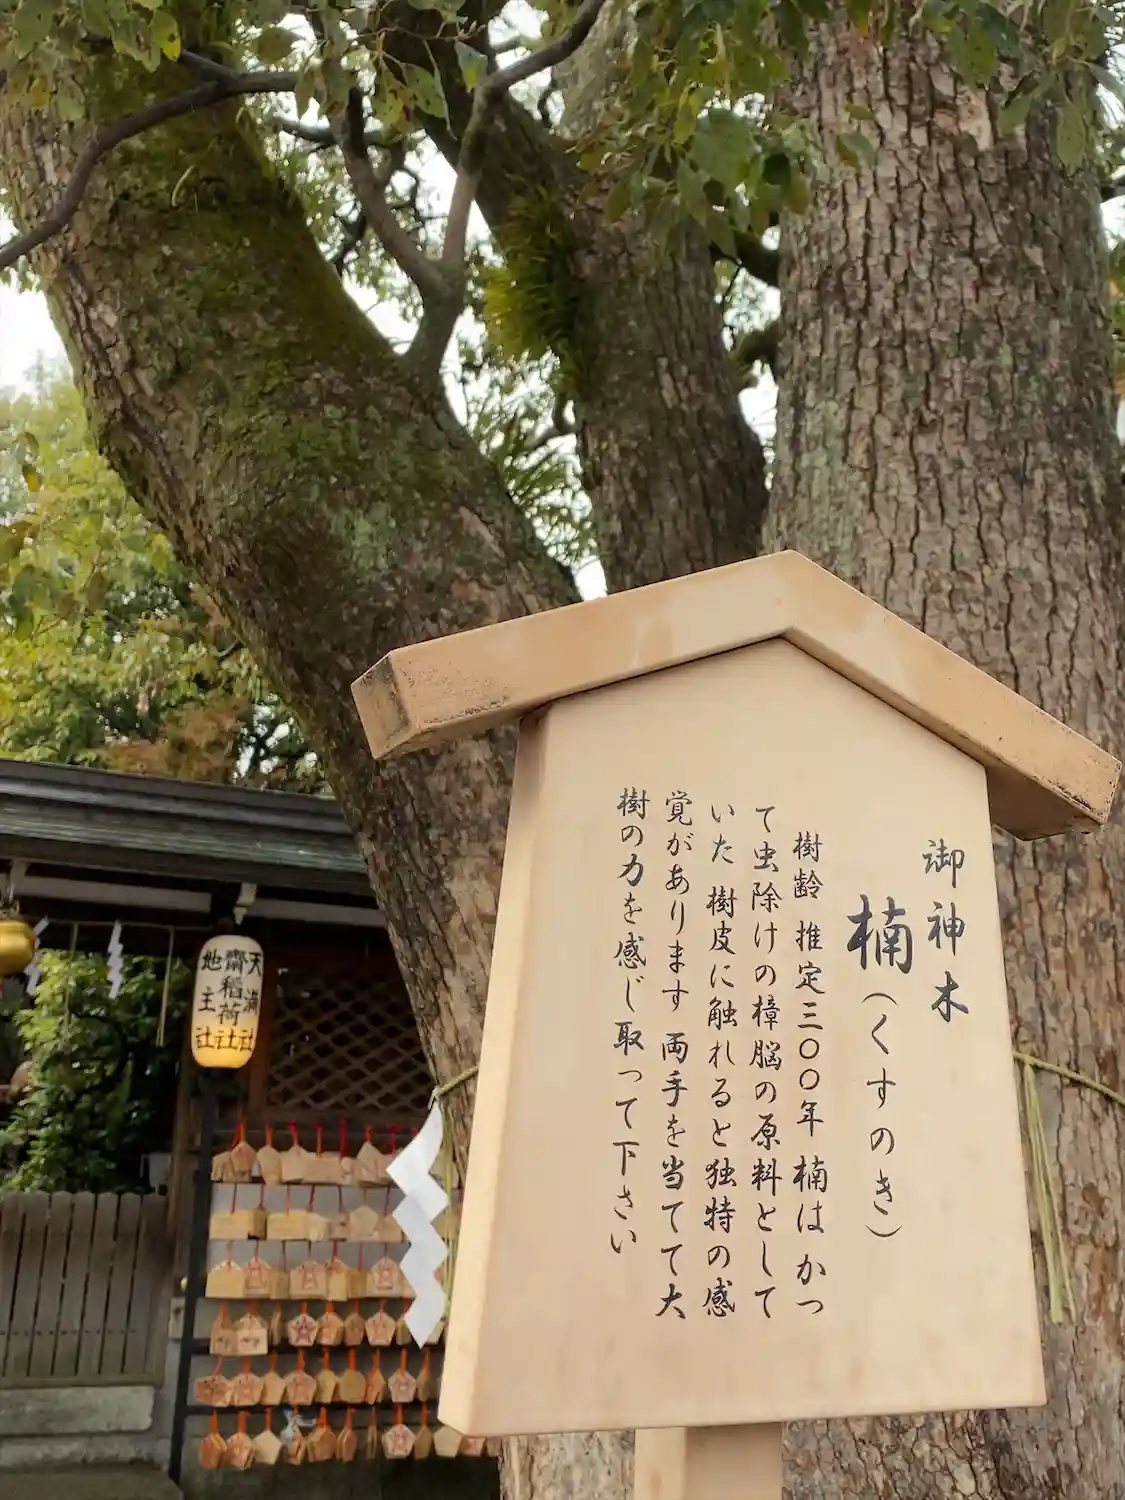 御神木
楠（くすのき）
樹齢 推定三〇〇年 楠は かつ
て虫除けの樟脳の原料として
いた 樹皮に触れると独特の感
覚があります 両手を当てて大
樹の力を感じ取って下さい
天満社
齋稲荷社
地主社